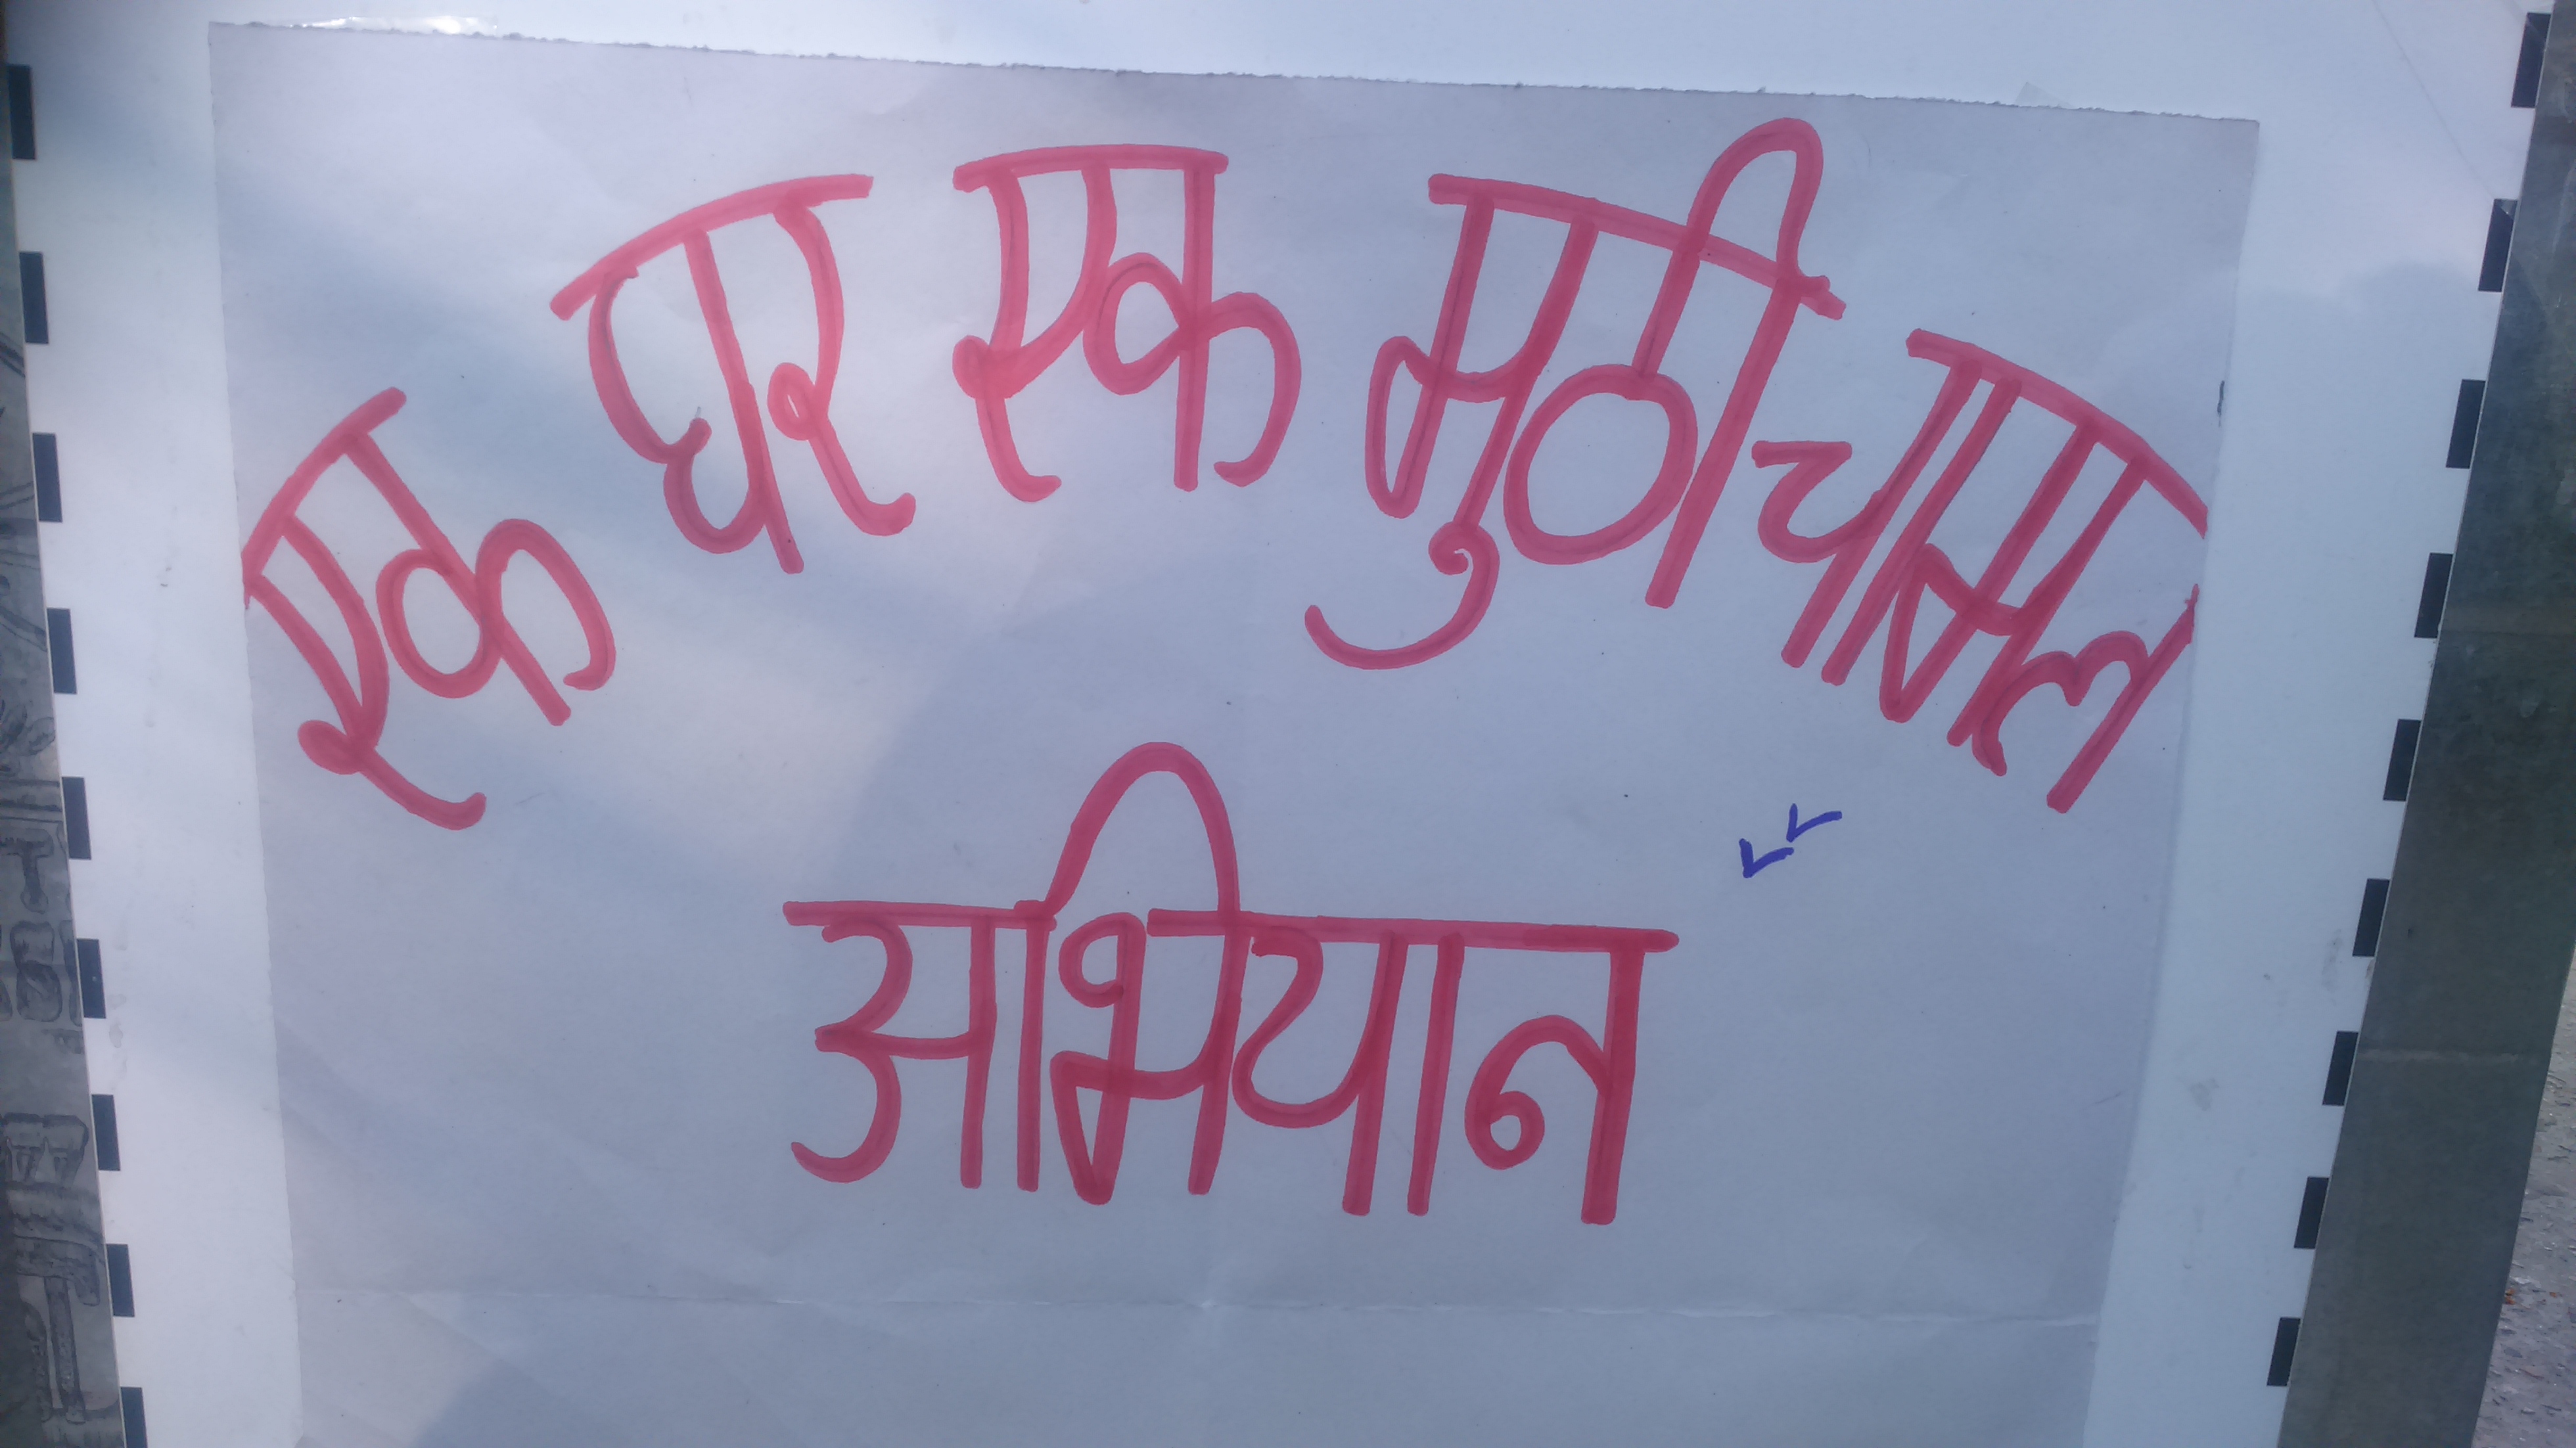 एक घर एक मुठी चामल
अभियान